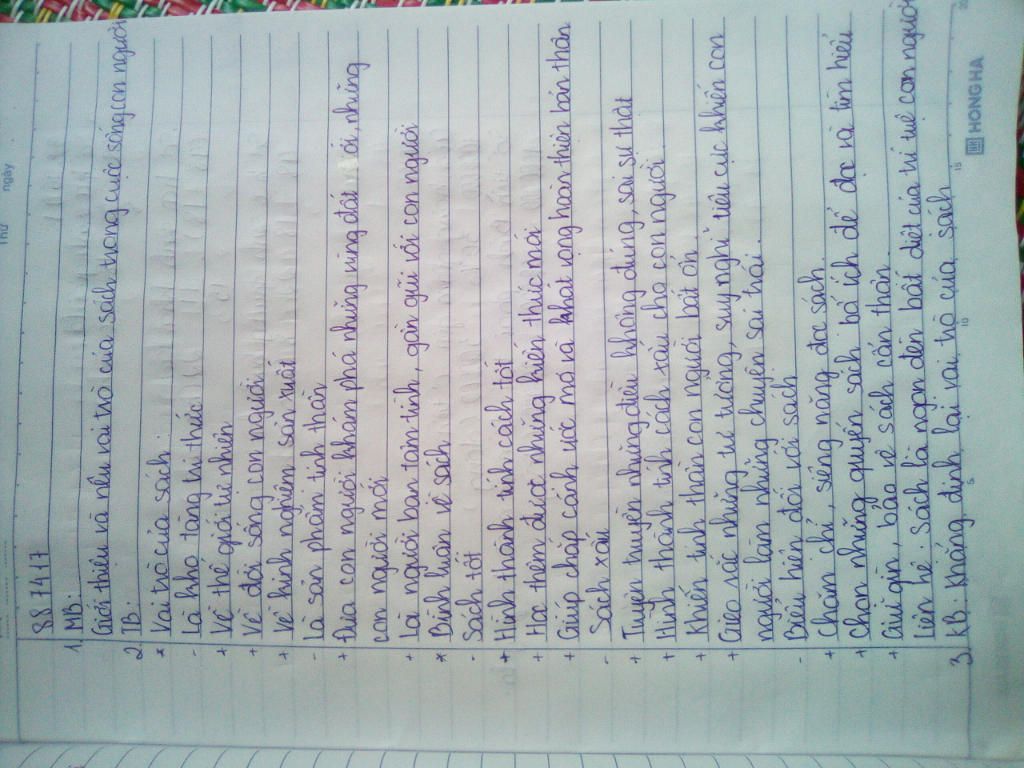 Thứ ngày
887417
1. MB:
Giới thiệu và nêu vai trò của sách trong cuộc sống con người
2. TB:
* Vai trò của sách
- Là kho tàng tri thức
+ Về thế giới tự nhiên
+ Về đời sống con người
+ Về kinh nghiệm sản xuất
- Là sản phẩm tinh thần
+ Đưa con người khám phá những vùng đất mới, những
con người mới
+ Là người bạn tâm tình, gần gũi với con người
* Bình luận về sách
- Sách tốt
+ Hình thành tính cách tốt
+ Học thêm được những kiến thức mới
+ Giúp chắp cánh ước mơ và khát vọng hoàn thiện bản thân
- Sách xấu
+ Tuyên truyền những điều không đúng, sai sự thật
+ Hình thành tính cách xấu cho con người
+ Khiến tinh thần con người bất ổn
+ Gieo rắc những tư tưởng, suy nghĩ tiêu cực khiến con
người làm những chuyện sai trái.
- Biểu hiện đối với sách
+ Chăm chỉ, siêng năng đọc sách.
+ Chọn những quyển sách bổ ích để đọc và tìm hiểu
+ Giữ gìn, bảo vệ sách cẩn thận.
Liên hệ: Sách là ngọn đèn bất diệt của trí tuệ con người
3. KB: Khẳng định lại vai trò của sách
5 10 15 20
HONG HA